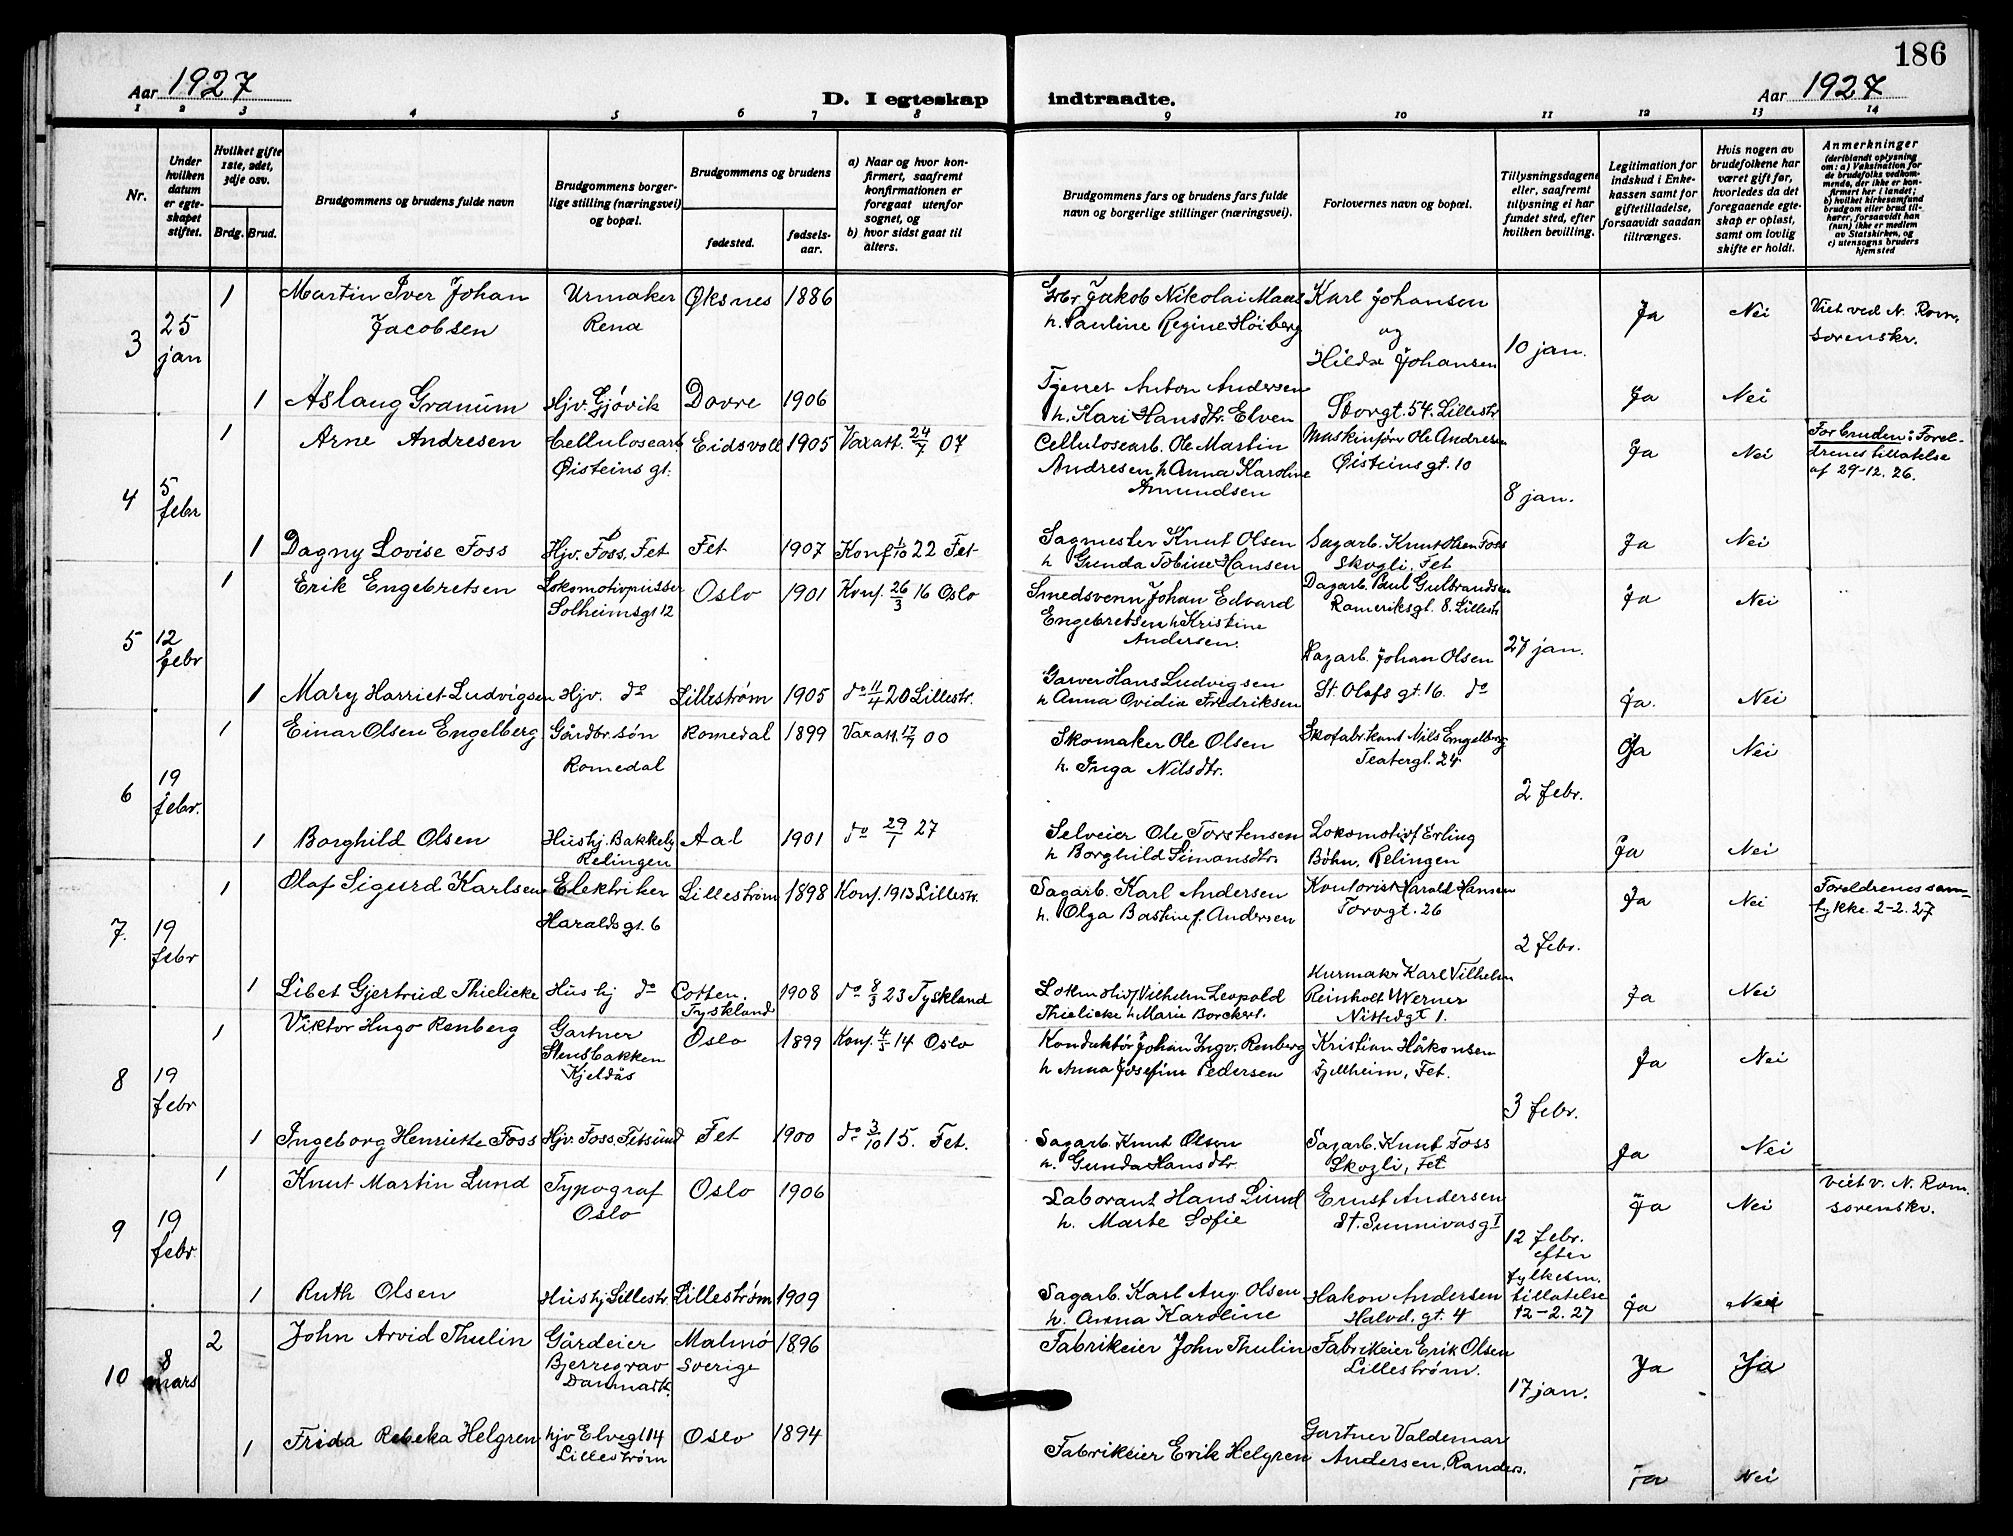 186
Aar 1927
D. I egteskap indtraadte.
Aar 1927
1 2 3 4 5 6 7 8 9 10 11 12 13 14
Nr.
Under hvilken datum er egteskapet stiftet.
Hvilket gifte 1ste, 2det, 3dje osv.
Brdg. Brud.
Brudgommens og brudens fulde navn
Brudgommens borgerlige stilling (næringsvei) og bopæl.
Brudgommens og brudens
fødested.
fødselsaar.
a) Naar og hvor konfirmert, saafremt konfirmationen er foregaat utenfor sognet, og
b) hvor sidst gaat til alters.
Brudgommens fars og brudens fars fulde navn og borgerlige stillinger (næringsvei).
Forlovernes navn og bopæl.
Tillysningsdagene eller, saafremt tillysning ei har fundet sted, efter hvilken bevilling.
Legitimation for indskud i Enkekassen samt for giftetilladelse, forsaavidt saadan tiltrænges.
Hvis nogen av brudefolkene har været gift før, hvorledes da det foregaaende egteskap er opløst, samt om lovlig skifte er holdt.
Anmerkninger
(deriblandt oplysning om: a) Vaksination for de brudefolks vedkommende, der ikke er konfirmert her i landet; b) hvilket kirkesamfund brudgom eller brud tilhører, forsaavidt han (hun) ikke er medlem av Statskirken, og c) utensogns bruders hjemsted
3
25 jan
1 Martin Iver Johan Jacobsen
Urmaker Rena
Øksnes 1886
Grbr. Jakob Nikolai Maas
h. Pauline Regine Höiberg
Karl Johansen
og
Hilda Johansen
Storgt. 54. Lillestr
10 jan.
Ja Nei
Viet ved N. Rom. sorenskr.
1 Aslaug Granum
Hjv. Gjövik
Dovre 1906
Anton Andersen
h. Kari Hansdtr. Elven
Ja Nei
4
5 febr
1 Arne Andresen
Cellulosearb. Øisteins gt.
Eidsvoll 1905 Vaxatt. 24/7 07
Cellulosearb. Ole Martin
Andresen h Anna Karoline
Amundsen
Maskinfører Ole Andresen
Øisteinsgt. 10
8 jan.
Ja Nei
For bruden: Foreldrenes tillatelse af 29-12. 26.
1 Dagny Lovise Foss
Hjv. Foss, Fet
Fet 1907 Konf 1/10 22 Fet
Sagmester Knut Olsen
h Gunda Tobine Hansen
Sagarb. Knut Olsen Foss
Skogli, Fet
Ja Nei
5
12 febr
1 Erik Engebretsen
Lokomotivpusser
Solheimsgt 12
Oslo 1901 Konf. 26/3 16 Oslo
Smedsvenn Johan Edvard
Engebretsen h Kristine
Andersen.
Dagarb. Paul Gulbrandsen
Romeriksgt. 8. Lillestr
27 jan.
Ja Nei
1 Mary Harriet Ludvigsen
Hjv. do
Lillestrøm 1905 do 11/4 20 Lillestr.
Garver Hans Ludvigsen
h Anna Ovidia Fredriksen
Dagarb. Johan Olsen
St. Olafs gt. 16. do
Ja. Nei
6
19 febr.
1 Einar Olsen Engelberg
Gårdbr. søn
Romedal
Romedal 1899 Vaxatt. 17/7 00
Skomaker Ole Olsen
h. Inga Nilsdtr.
Skofabrikant Nils Engelberg
Teatergt. 24
2 febr.
Ja Nei
1 Borghild Olsen
Hushj. Bakkeby
Relingen
Aal 1901 do 29/1 27
Selveier Ole Torstensen
h Borghild Simonsdtr.
Lokomotivf Erling
Bøhn, Relingen
Ja Nei
7.
19 febr
1 Olaf Sigurd Karlsen
Elektriker
Haralds gt. 6
Lillestrøm 1898 Konf. 1913 Lillestr.
Sagarb. Karl Andersen
h. Olga Bastine f. Andersen
Kontorist Harald Hansen
Torvgt. 26
2 febr.
Ja Nei
Foreldrenes samtykke. 2-2. 27
1 Libet Gjertrud Thielicke
Hushj do
Cotten. Tyskland 1908 do 8/3 23 Tyskland
Lokmotivf. Vilhelm Leopold
Thielicke h Marie Borckert.
Kurmaker Karl Vilhelm
Reinholt Werner
Nittedgt 1.
Ja Nei
8
19 febr
1 Viktor Hugo Renberg
Gartner
Stensbakken
Kjeldås
Oslo 1899 Konf. 4/5 14 Oslo
Konduktör Johan Ingv. Renberg
h Anna Josefine Pedersen
Kristian Håkonsen
Fjellheim, Fet.
3 febr.
Ja Nei
1 Ingeborg Henriette Foss
Hjv. Foss, Fetsund
Fet 1900 do 3/10 15. Fet.
Sagarb. Knut Olsen
h. Gunda Hansdtr
Sagarb. Knut Foss
Skogli, Fet
Ja Nei
9
19 febr
1 Knut Martin Lund
Typograf
Oslo
Oslo 1906
Laborant Hans Lund
h. Marte Sofie
Ernst Andersen
St. Sunnivasg 1
12 febr. efter fylkesm. tillatelse 12-2. 27
Ja Nei
viet v. N. Rom. sorenskr.
1 Ruth Olsen
Hushj Lillestr.
Lillestrøm 1909
Sagarb. Karl Aug. Olsen
h. Anna Karoline
Hakon Andersen
Halvd. gt. 4
Ja Nei
10
8 mars
2 John Arvid Thulin
Gårdeier
Bjerregrav
Danmark.
Malmö Sverige 1896
Fabrikeier John Thulin
Fabrikeier Erik Olsen
Lillestrøm.
17 jan.
Ja Ja
1 Frida Rebeka Helgren
hjv Elvegt 14
Lillestrøm
Oslo 1894
Fabrikeier Erik Helgren
Gartner Valdemar
Andersen, Randers.
Ja Nei